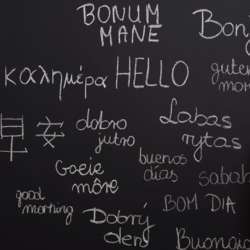 BONUM
MANE
Bon
καλημέρα HELLO
guten
mor
早安
dobro
jutro
Labas
rytas
Goeie
môre
buenos
días
sabah
good
morning
BOM DIA
Dobrý
den
Buongio